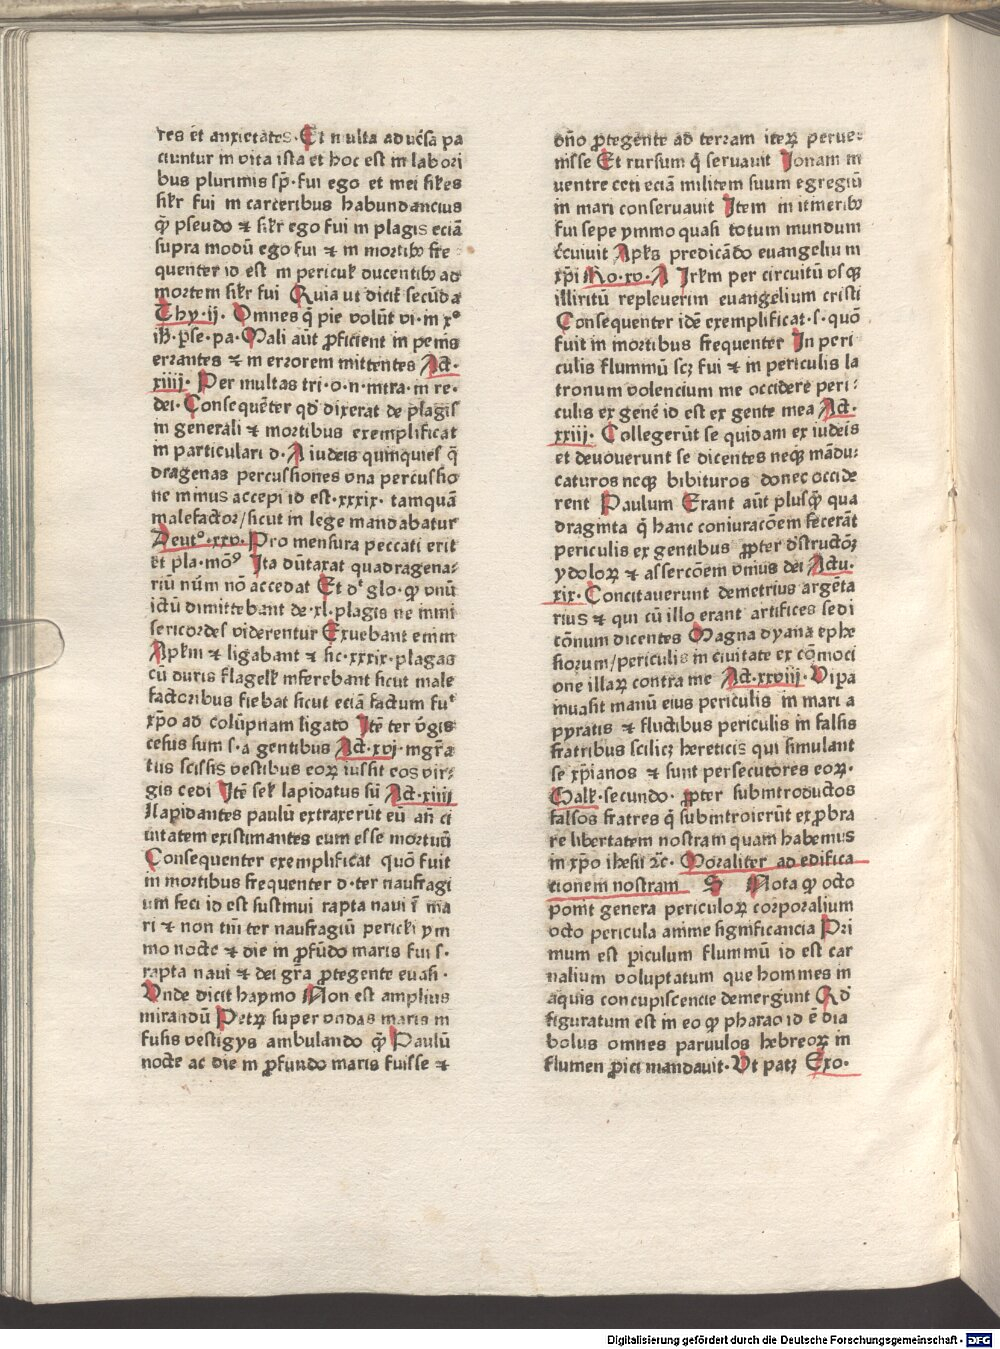 res et anxietates. Et multa aduersa pa
ciuntur in vita ista et hoc est in labori
bus plurimis sp̄. fui ego et mei sil̄es
sil̄r fui in carceribus habundancius
ꝙ̄ pseudo ⁊ sil̄r ego fui in plagis eciā
supra modū ego fui ⁊ in mortibꝰ fre
quenter id est in pericul̄ ducentibꝰ ad
mortem sil̄r fui Quia ut dicit̄ secūda
Thy. ij. Omnes q̄ pie volūt vi. in xº
ih̄. ꝑse. pa. Mali aūt ꝓficient in peius
errantes ⁊ in errorem mittentes Act.
xiiij. Per multas tri. o. n. intra. in re.
dei. Consequēter qd̄ dixerat de plagis
in generali ⁊ mortibus exemplificat
in particulari d. A iudeis quinquies q̄
dragenas percussiones vna percussio
ne minus accepi id est. xxxix. tamquā
malefactor/sicut in lege mandabatur
Deutº. xxv. Pro mensura peccati erit
et pla. moꝰ Ita dūtaxat quadragena⸗
riū nūm nō accedat Et dt̄ glo. ꝙ vnū
ictū dimittebant de. xl. plagis ne inmi
sericordes viderentur Exuebant enim
Apl̄m ⁊ ligabant ⁊ sic. xxxix. plagas
cū duris flagell̄ inferebant sicut male
factoribus fiebat sicut eciā factum fuᵗ
xp̄o ad colūpnam ligato Itē ter v̄gis
cesus sum s. a gentibus Act. xvj. mgr̄a
tus scissis vestibus eoꝝ iussit eos vir⸗
gis cedi Itē sel̄ lapidatus sū Act. xiiij
Ilapidantes paulū extraxerūt eū añ ci
uitatem existimantes eum esse mortuū
Consequenter exemplificat quō fuit
in mortibus frequenter d. ter naufragi
um feci id est sustinui rapta naui ī ma
ri ⁊ non tm̄ ter naufragiū pericli ym
mo nocte ⁊ die in ꝓfūdo maris fui s.
rapta naui ⁊ dei gr̄a ꝓtegente euasi.
Vnde dicit haymo Non est amplius
mirandū Petꝝ super vndas maris in
fusis vestigys ambulando ꝙ̄ Paulū
nocte ac die in ꝓfundo maris fuisse ⁊
dño ꝓtegente ad terram iteꝝ perue⸗
nisse Et rursum q̄ seruauit Jonam in
uentre ceti eciā militem suum egregiū
in mari conseruauit Item in itineribꝰ
fui sepe ymmo quasi totum mundum
c̄cuiuit Apl̄s predicādo euangelium
xp̄i Ro. xv. A Jrl̄m per circuitū vsqꝫ
illiritū repleuerim euangelium cristi
Consequenter idē exemplificat. s. quō
fuit in mortibus frequenter In peri
culis fluminū scꝫ fui ⁊ in periculis la
tronum volencium me occidere peri⸗
culis ex genē id est ex gente mea Act.
xxiij. Collegerūt se quidam ex iudeis
et deuouerunt se dicentes neqꝫ mādu⸗
caturos neqꝫ bibituros donec occide
rent Paulum Erant aūt plusꝙ̄ qua
draginta q̄ hanc coniuracōem fecerāt
periculis ex gentibus ꝓpter d̄structōꝫ
ydoloꝝ ⁊ assercōem vnius dei Actu.
xix. Concitauerunt demetrius argēta
rius ⁊ qui cū illo erant artifices sedi
cōnum dicentes Magna dyana ephe
siorum/periculis in ciuitate ex cōmoci
one illaꝝ contra me Act. xxviij. Vipa
inuasit manū eius periculis in mari a
pyratis ⁊ fluctibus periculis in falsis
fratribus scilicꝫ hereticis qui simulant
se xp̄ianos ⁊ sunt persecutores eoꝝ.
Gall̄. secundo. ꝓpter subintroductos
falsos fratres q̄ subintroierūt exꝓbra
re libertatem nostram quam habemus
in xp̄o ihesu ⁊c̄. Moraliter ad edifica
tionem nostram S Nota ꝙ octo
ponit genera periculoꝝ corporalium
octo pericula anime significancia Pri
mum est piculum fluminū id est car
nalium voluptatum que homines in
aquis concupiscencie demergunt Qd̄
figuratum est in eo ꝙ pharao id ē dia
bolus omnes paruulos hebreoꝝ in
flumen ꝓici mandauit. Vt patꝫ Exo.
Digitalisierung gefördert durch die Deutsche Forschungsgemeinschaft - DFG